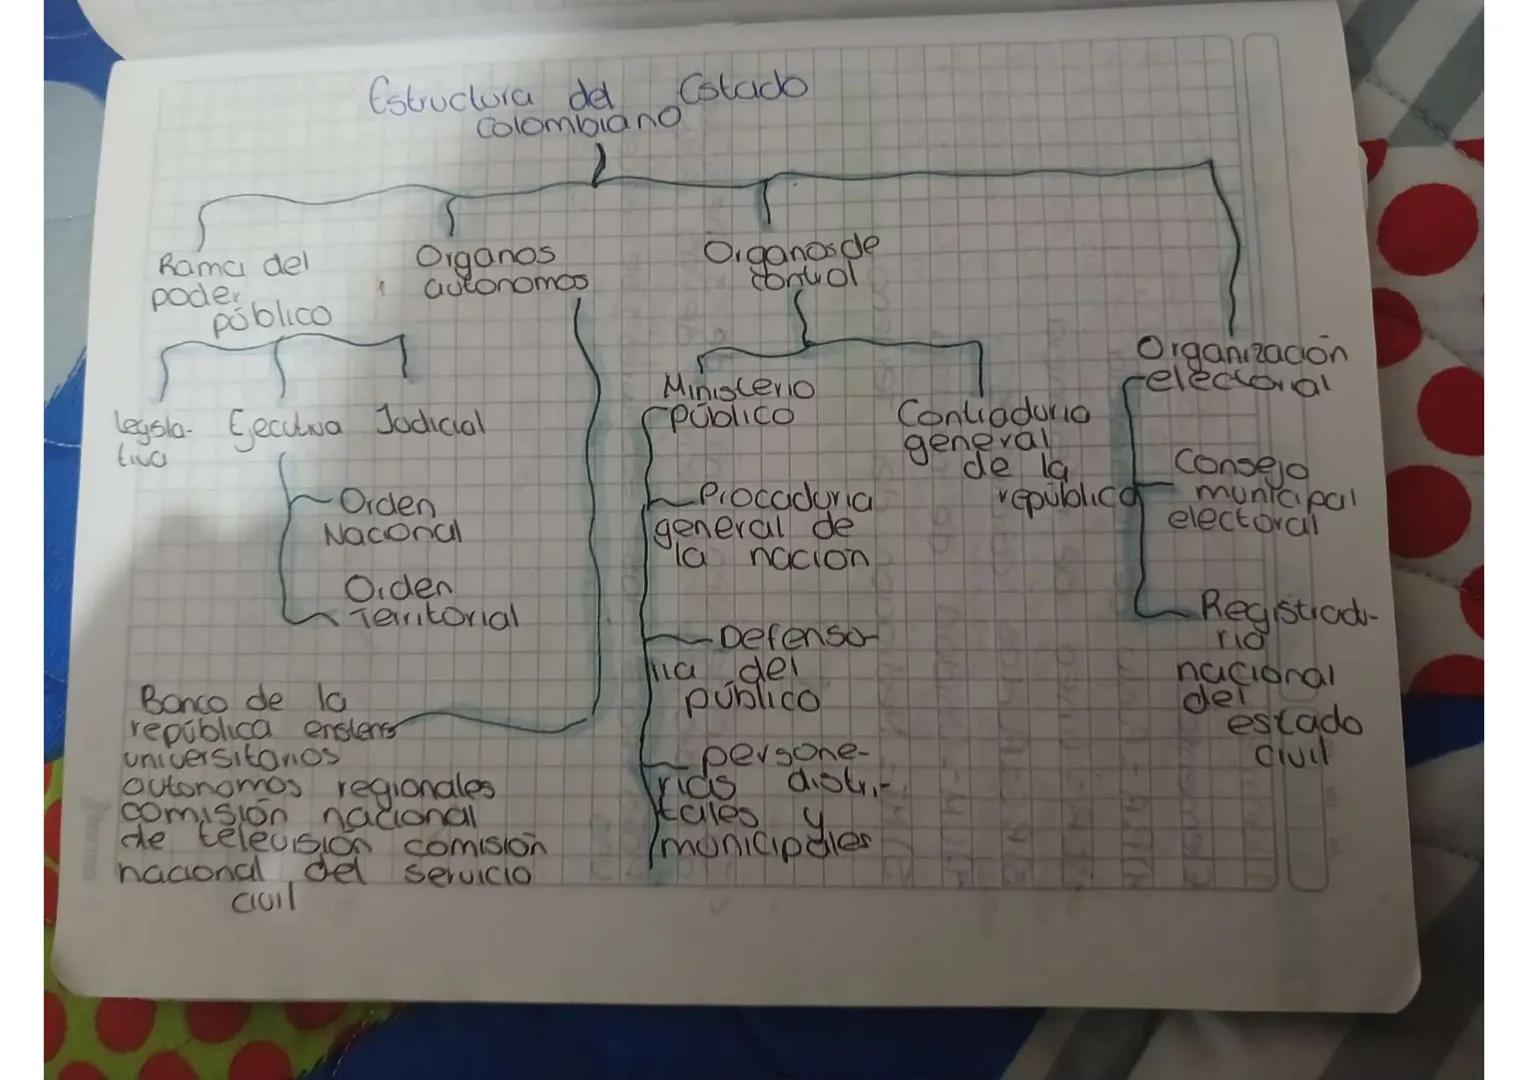 Estructura del Estado
colombiano
Rama del
poder
público
Organos
autonomos
Organos de
control
Organización
electoral
legisla-
tiva
Ejecutiva
Judicial
Orden
Nacional
Orden
Territorial
Banco de la
república
universitarios
autonomos regionales
comisión nacional
de televisión comisión
nacional del servicio
civil
Ministerio
público
Procaduria
general de
la nación
Defenso-
ria del
público
persone-
rias distri-
tales y
municipales
Contraduria
general
de la
república
Consejo
municipal
electoral
Registradu-
ria
nacional
del
estado
civil